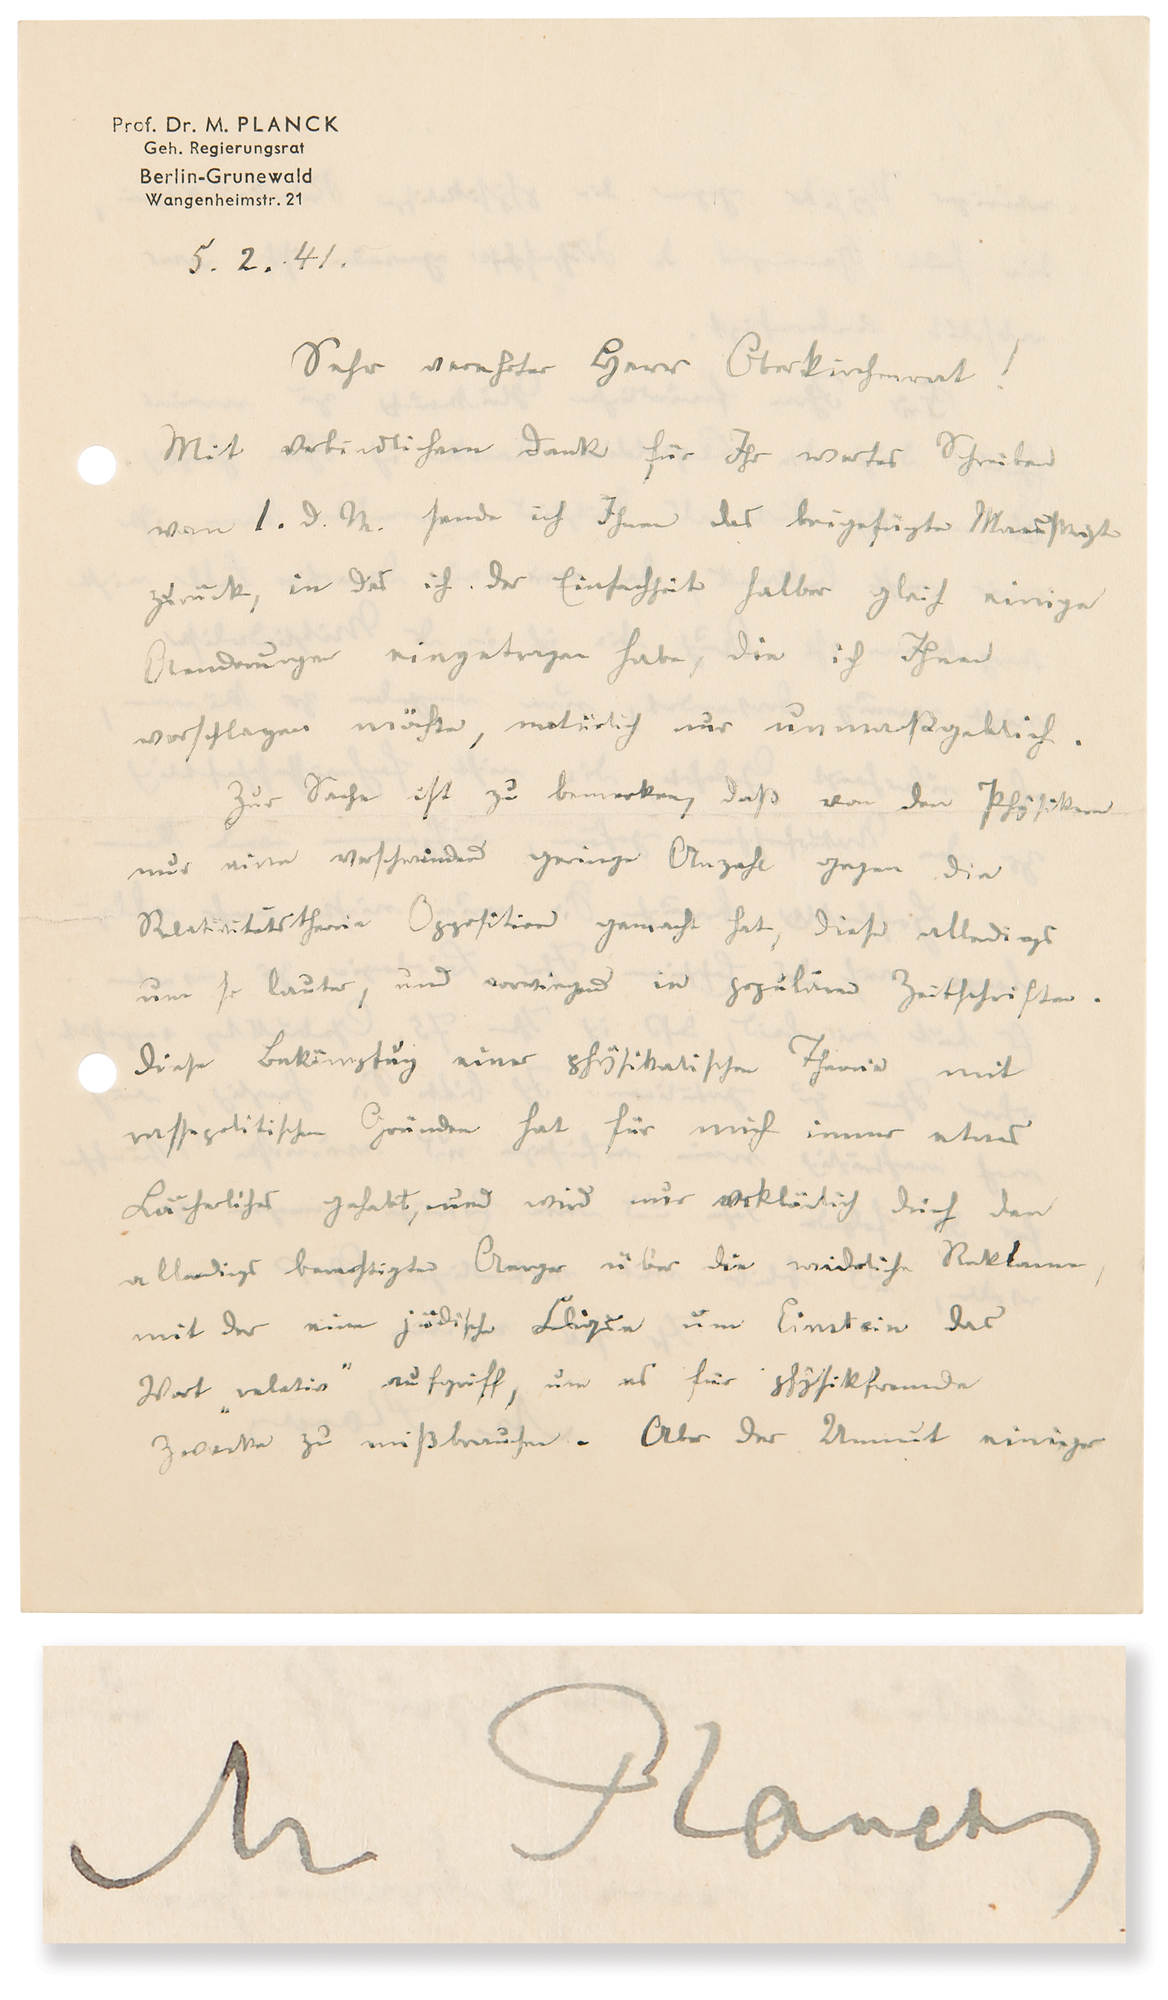 Prof. Dr. M. PLANCK
Geh. Regierungsrat
Berlin-Grunewald
Wangenheimstr. 21
5. 2. 41.
Sehr verehrter Herr Oberkirchenrat!
Mit verbindlichem Dank für Ihr wertes Schreiben
vom 1. d. M. sende ich Ihnen das beigefügte Manuskript
zurück, in das ich der Einfachheit halber gleich einige
Aenderungen eingetragen habe, die ich Ihnen
vorschlagen möchte, natürlich nur unmaßgeblich.
Zur Sache ist zu bemerken, daß von den Physikern
nur eine verschwindend geringe Anzahl gegen die
Relativitätstheorie Opposition gemacht hat, diese allerdings
um so lauter, und vorwiegend in populären Zeitschriften.
Diese Bekämpfung einer physikalischen Theorie mit
rassepolitischen Gründen hat für mich immer etwas
Lächerliches gehabt, und wird nur erklärlich durch den
allerdings berechtigten Aerger über die widerliche Reklame,
mit der eine jüdische Clique um Einstein das
Wort „relativ" aufgriff, um es für physikfremde
Zwecke zu mißbrauchen. Aber der Unmut einiger
M Planck